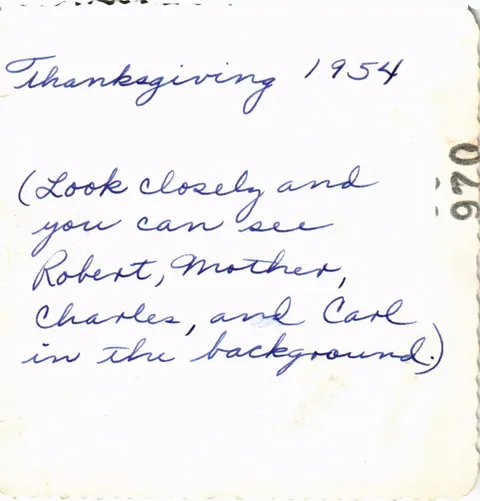 Thanksgiving 1954
(Look closely and
you can see
Robert, Mother,
Charles, and Carl
in the background.)
970